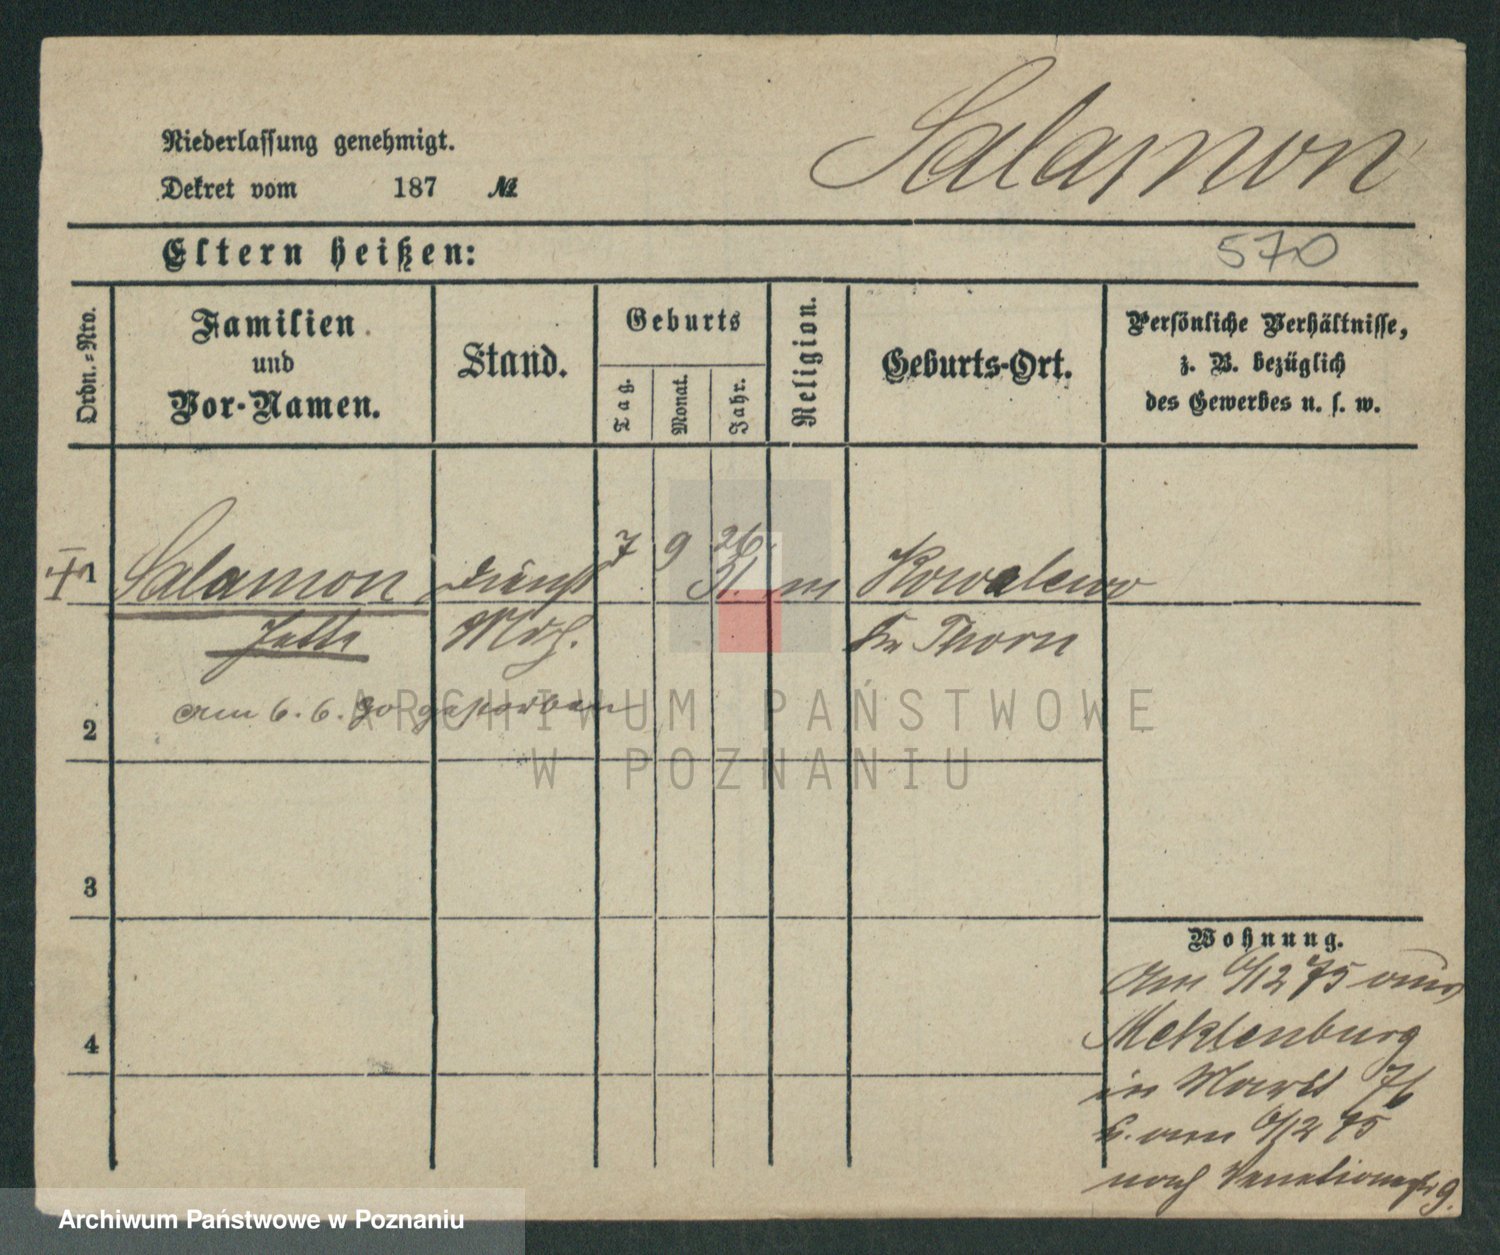 Niederlassung genehmigt.
Dekret vom 187 №
Salamon
Eltern heißen:
570
Ordn.=Nro.
Familien
und
Vor-Namen.
Stand.
Geburts
Tag.
Monat.
Jahr.
Religion.
Geburts-Ort.
Persönliche Verhältnisse,
z. B. bezüglich
des Gewerbes u. s. w.
1 Salamon Dienst 7 9 26 m Kowalewo
Jette Mdch. Kr Thorn
am 6. 6. 90 gestorben
2
3
4
Wohnung.
Am 6/12 75 aus
Meklenburg
in Markt 76
am 6/12 75
nach 9.
ARCHIWUM PAŃSTWOWE
W POZNANIU
Archiwum Państwowe w Poznaniu